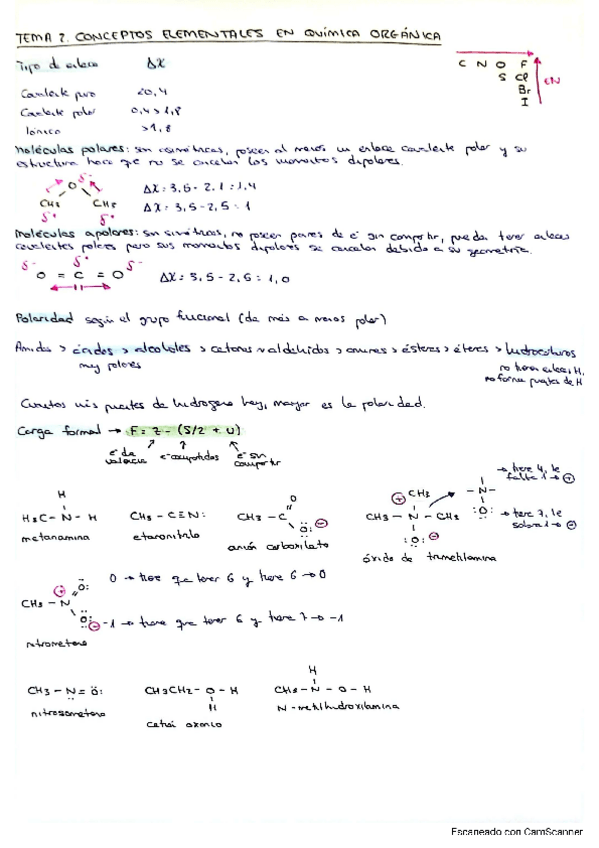 TEMA 2. CONCEPTOS ELEMENTALES EN QUÍMICA ORGÁNICA
Tipo de enlace ΔX
C N O F
S Cl
Br
I
EN
Covalente puro <0,4
Covalente polar 0,4 > 1,8
Iónico >1,8
Moléculas polares: son asimétricas, poseen al menos un enlace covalente polar y su
estructura hace que no se cancelen los momentos dipolares.
δ- O δ-
CH3 CH3
δ+ δ+
ΔX: 3,5 - 2,1 : 1,4
ΔX: 3,5 - 2,5 : 1
Moléculas apolares: son simétricas, no poseen pares de e- sin compartir, pueden tener enlaces
covalentes polares pero sus momentos dipolares se cancelan debido a su geometría.
δ- δ+ δ-
O = C = O
ΔX: 3,5 - 2,5 : 1,0
Polaridad según el grupo funcional (de más a menos polar)
Amidas > ácidos > alcoholes > cetonas y aldehidos > aminas > ésteres > éteres > hidrocarburos
muy polares
no tienen enlaces H,
no forma puentes de H
Cuantos más puentes de hidrógeno hay, mayor es la polaridad.
Carga formal → F = Z - (S/2 + U)
e- de valencia
e- compartidos
e- sin compartir
H
H3C - N - H
metanamina
CH3 - C≡N:
etanonitrilo
O
CH3 - C
:O: ⊖
anión carboxilato
⊕ CH3
CH3 - N - CH3
:O: ⊖
óxido de trimetilamina
- N -
:O:
→ tiene 4, le
falta 1 → ⊕
→ tiene 7, le
sobra 1 → ⊖
⊕ O:
CH3 - N
O: ⊖
nitrometano
0 → tiene que tener 6 y tiene 6 → 0
-1 → tiene que tener 6 y tiene 7 → -1
CH3 - N = O:
nitrosometano
CH3CH2 - O - H
H
catión oxonio
H
CH3 - N - O - H
N-metilhidroxilamina
Escaneado con CamScanner